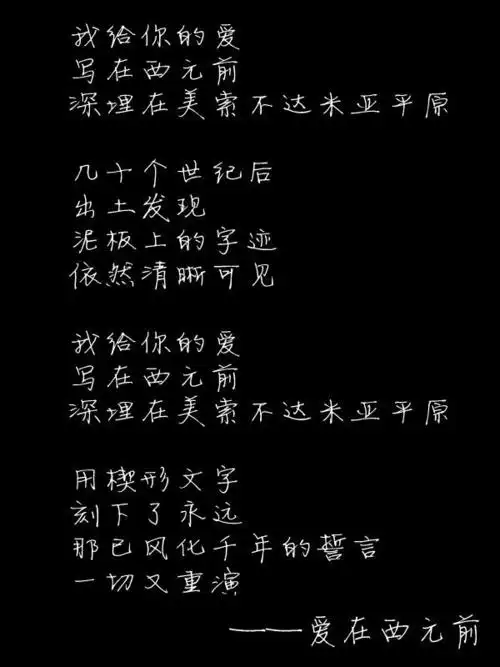 我给你的爱
写在西元前
深埋在美索不达米亚平原
几十个世纪后
出土发现
泥板上的字迹
依然清晰可见
我给你的爱
写在西元前
深埋在美索不达米亚平原
用楔形文字
刻下了永远
那已风化千年的誓言
一切又重演
——爱在西元前